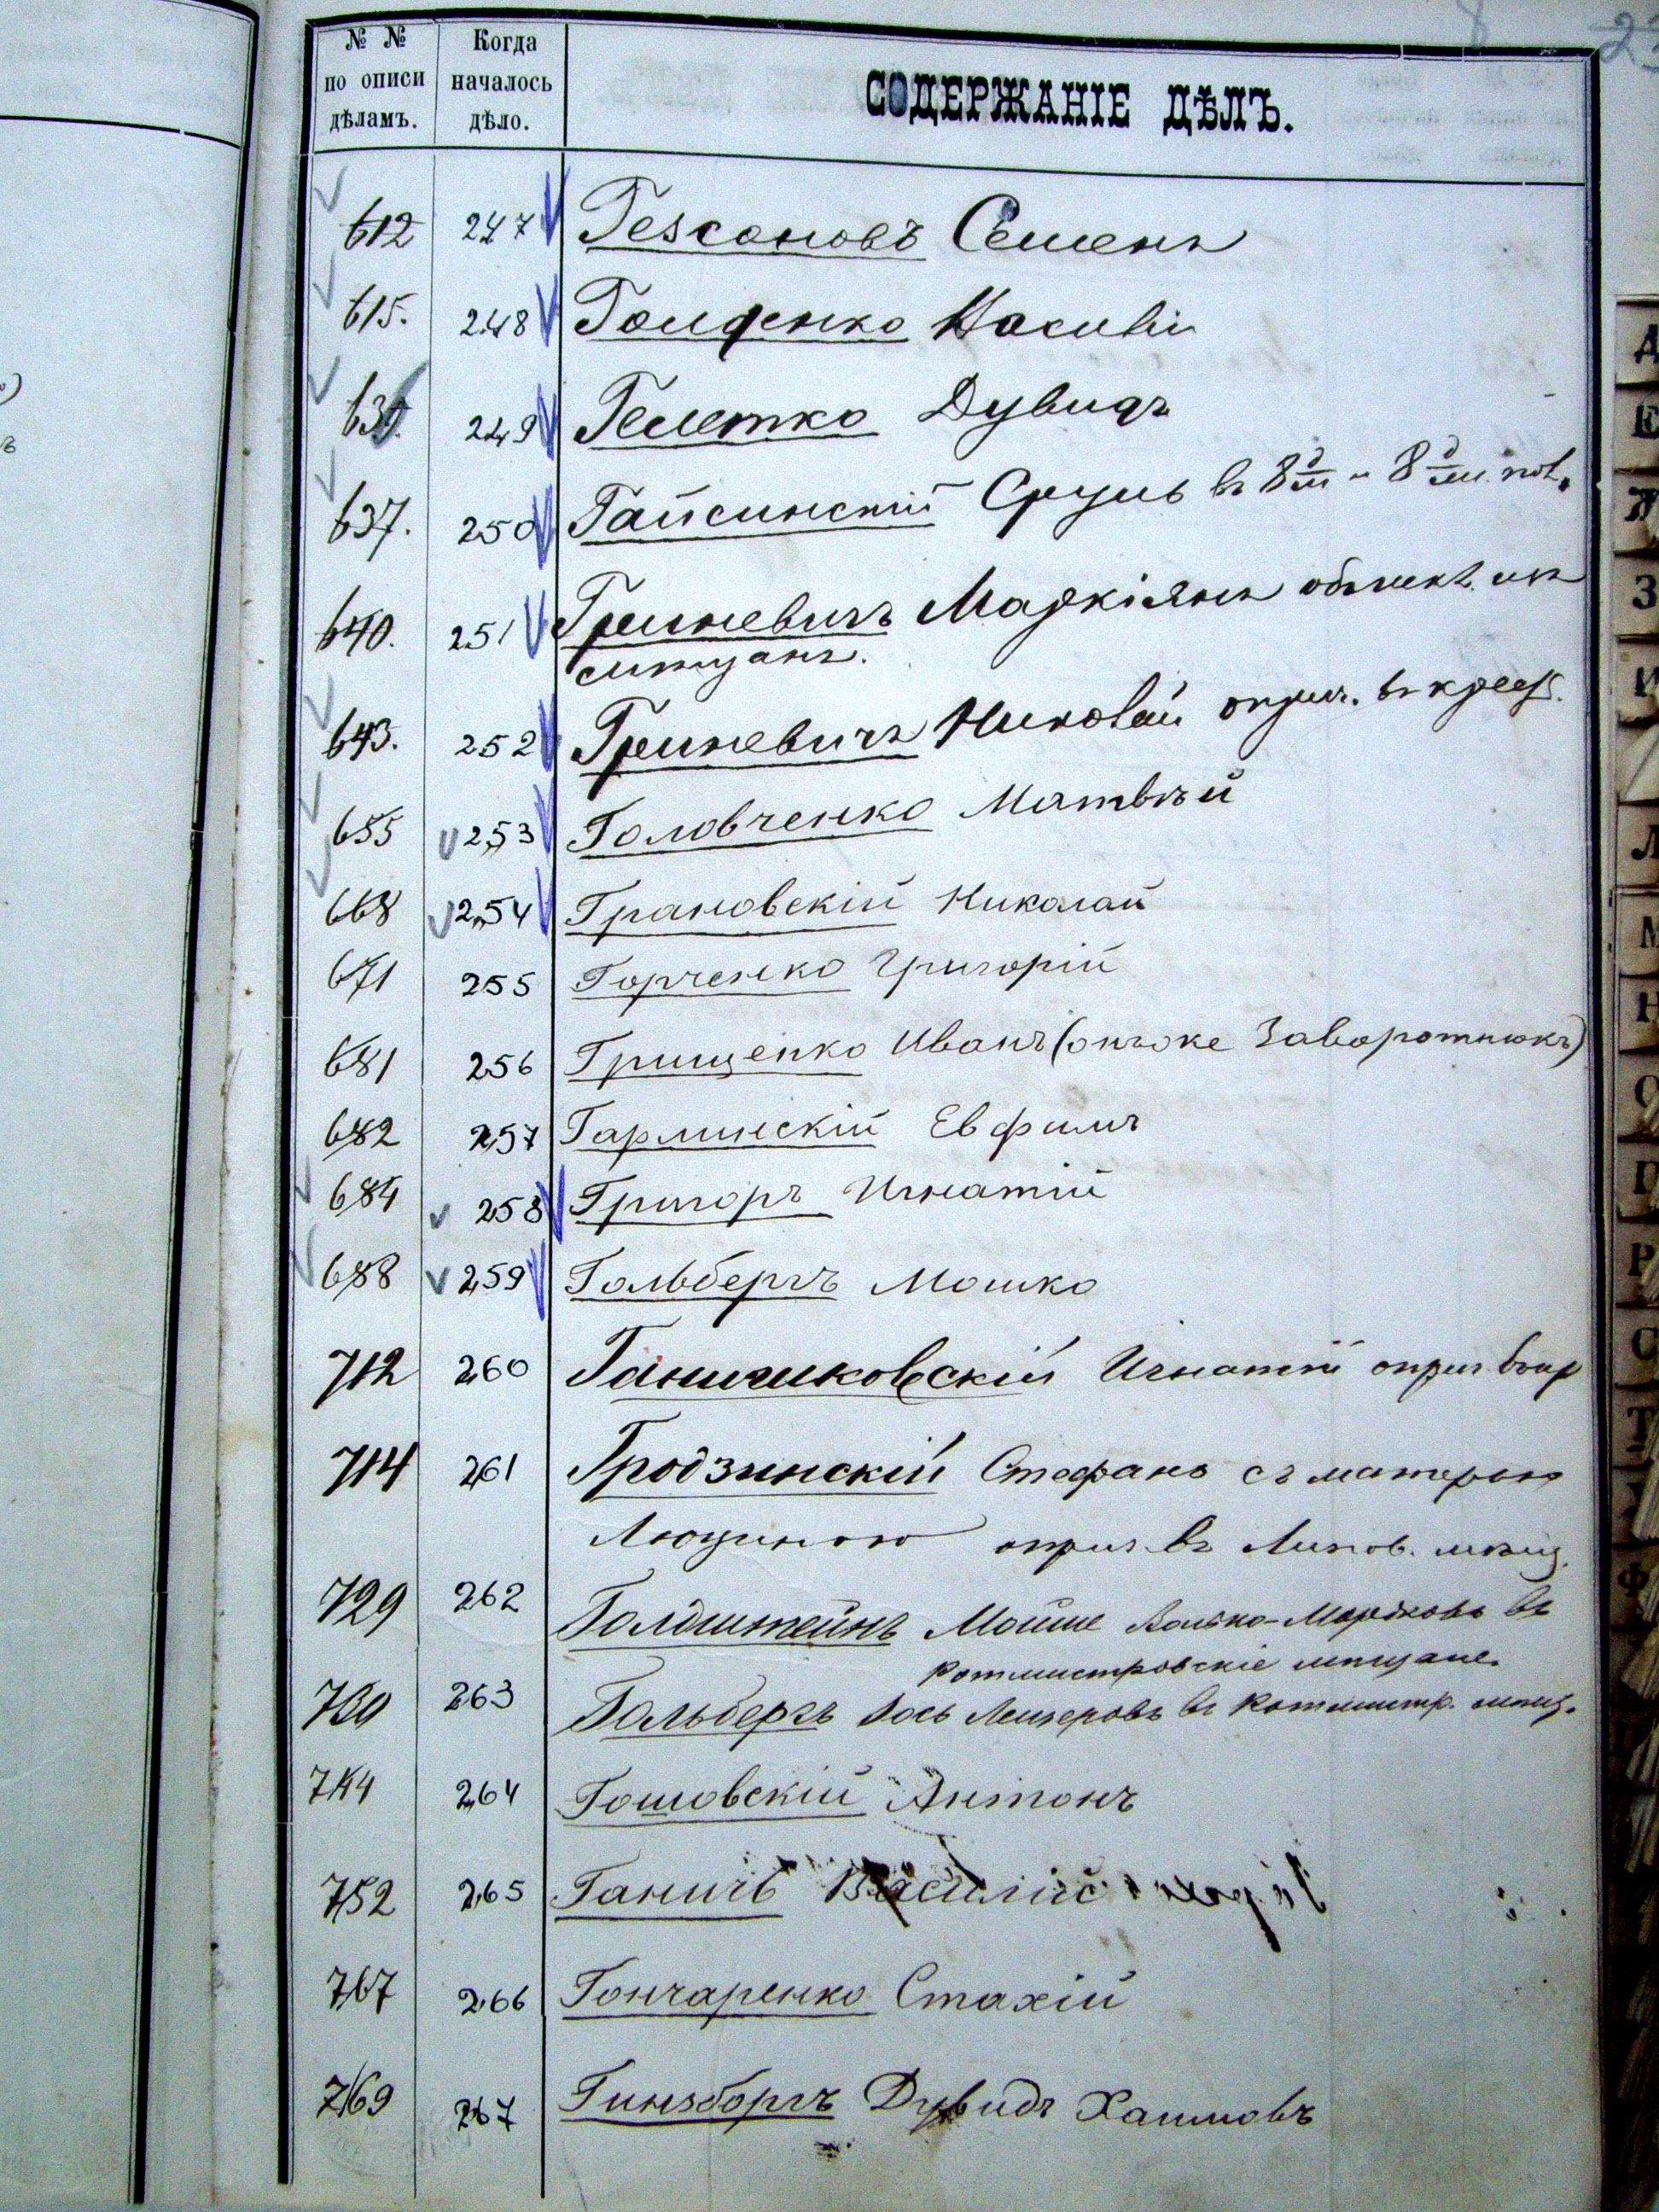 № № по описи дѣламъ.
Когда началось дѣло.
СОДЕРЖАНІЕ ДѢЛЪ.
612 247
615. 248
249 Дувидъ
637. 250 Гайсинскій Сруль въ
640. 251 Гриневичъ Маркіянъ
мѣщанъ.
643. 252 Гриневичъ Николай
655 253 Головченко Матвѣй
668 254 Грановскій Николай
671 255 Горченко Григорій
681 256 Грищенко Иванъ (онъже Заворотнюкъ)
682 257 Гарлинскій Евфимъ
684 258 Григоръ Игнатій
688 259 Гольбергъ Мошко
712 260 Игнатій
714 261 Гродзинскій Стефанъ съ матерью
Люциною въ Липов. мѣщ.
729 262 Голдштейнъ Мойше Волько-Мордковъ въ
Ротмистровскіе мѣщане.
730 263 Гольбергъ Іось Лейзеровъ въ Ротмистр. мѣщ.
744 264 Гошовскій Антонъ
752 265 Ганичъ Василій
767 266 Гончаренко Стахій
769 267 Гинзборгъ Дувидъ Хаимовъ
Д
Е
Ж
З
И
Л
М
Н
О
П
Р
С
Т
Ф